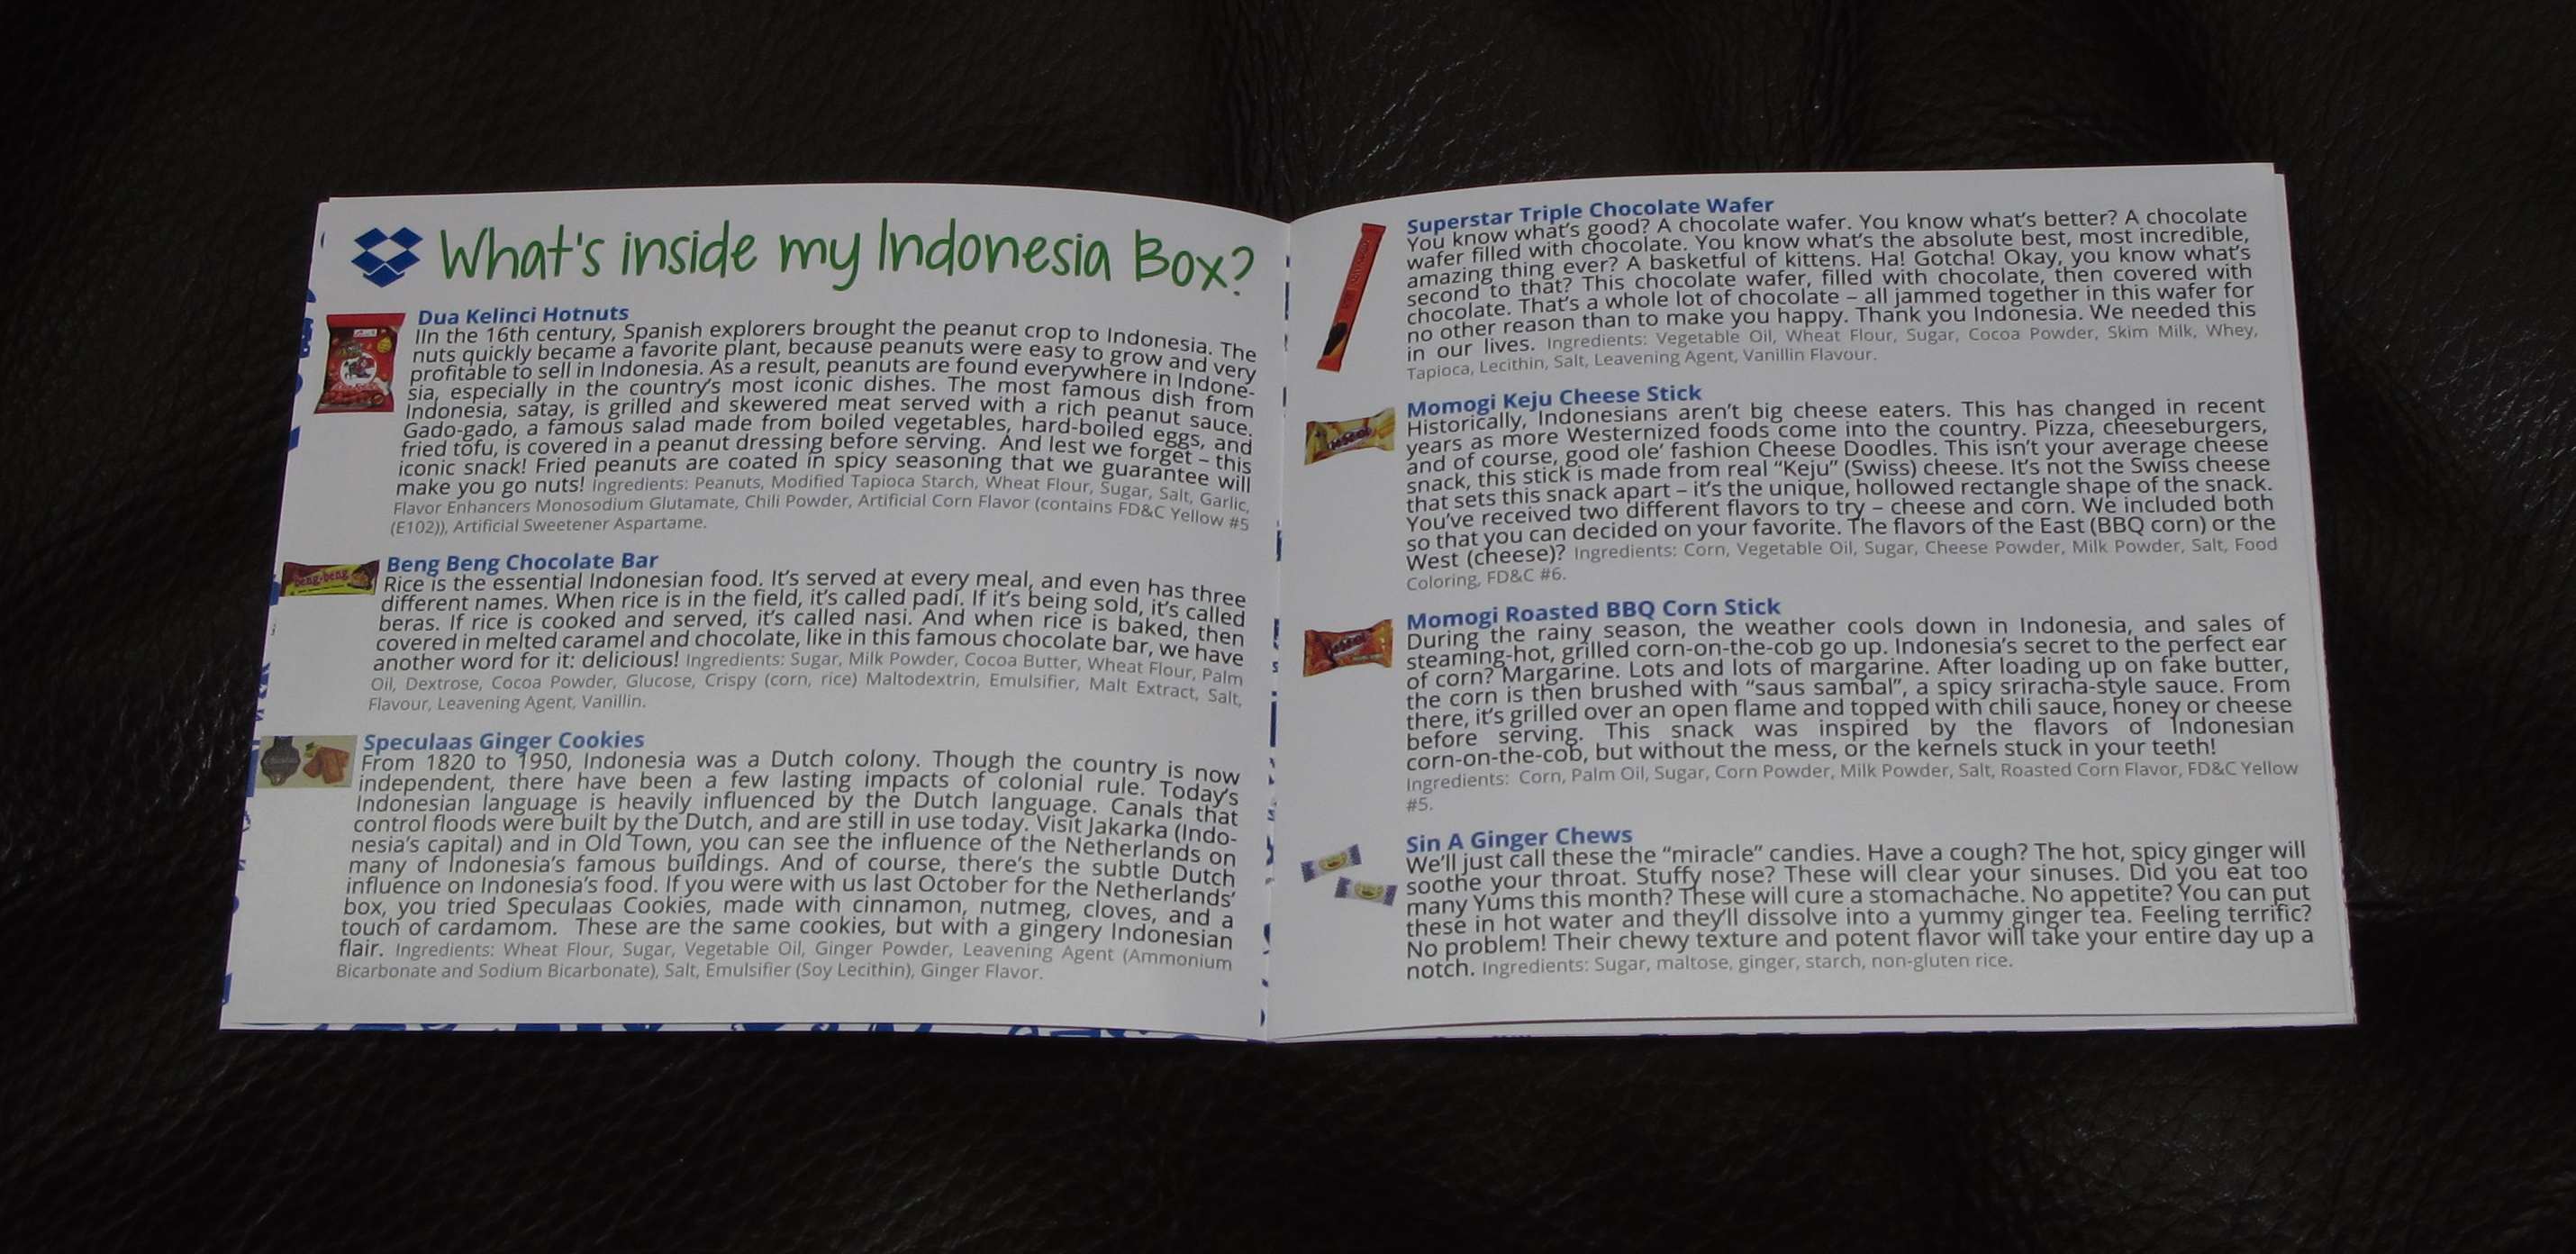 What's inside my Indonesia Box?
Dua Kelinci Hotnuts
IIn the 16th century, Spanish explorers brought the peanut crop to Indonesia. The
nuts quickly became a favorite plant, because peanuts were easy to grow and very
profitable to sell in Indonesia. As a result, peanuts are found everywhere in Indone-
sia, especially in the country's most iconic dishes. The most famous dish from
Indonesia, satay, is grilled and skewered meat served with a rich peanut sauce.
Gado-gado, a famous salad made from boiled vegetables, hard-boiled eggs, and
fried tofu, is covered in a peanut dressing before serving. And lest we forget – this
iconic snack! Fried peanuts are coated in spicy seasoning that we guarantee will
make you go nuts! Ingredients: Peanuts, Modified Tapioca Starch, Wheat Flour, Sugar, Salt, Garlic,
Flavor Enhancers Monosodium Glutamate, Chili Powder, Artificial Corn Flavor (contains FD&C Yellow #5
(E102)), Artificial Sweetener Aspartame.
beng-beng
Beng Beng Chocolate Bar
Rice is the essential Indonesian food. It's served at every meal, and even has three
different names. When rice is in the field, it's called padi. If it's being sold, it's called
beras. If rice is cooked and served, it's called nasi. And when rice is baked, then
covered in melted caramel and chocolate, like in this famous chocolate bar, we have
another word for it: delicious! Ingredients: Sugar, Milk Powder, Cocoa Butter, Wheat Flour, Palm
Oil, Dextrose, Cocoa Powder, Glucose, Crispy (corn, rice) Maltodextrin, Emulsifier, Malt Extract, Salt,
Flavour, Leavening Agent, Vanillin.
Speculaas Ginger Cookies
From 1820 to 1950, Indonesia was a Dutch colony. Though the country is now
independent, there have been a few lasting impacts of colonial rule. Today's
Indonesian language is heavily influenced by the Dutch language. Canals that
control floods were built by the Dutch, and are still in use today. Visit Jakarka (Indo-
nesia's capital) and in Old Town, you can see the influence of the Netherlands on
many of Indonesia's famous buildings. And of course, there's the subtle Dutch
influence on Indonesia's food. If you were with us last October for the Netherlands'
box, you tried Speculaas Cookies, made with cinnamon, nutmeg, cloves, and a
touch of cardamom. These are the same cookies, but with a gingery Indonesian
flair. Ingredients: Wheat Flour, Sugar, Vegetable Oil, Ginger Powder, Leavening Agent (Ammonium
Bicarbonate and Sodium Bicarbonate), Salt, Emulsifier (Soy Lecithin), Ginger Flavor.
Superstar Triple Chocolate Wafer
You know what's good? A chocolate wafer. You know what's better? A chocolate
wafer filled with chocolate. You know what's the absolute best, most incredible,
amazing thing ever? A basketful of kittens. Ha! Gotcha! Okay, you know what's
second to that? This chocolate wafer, filled with chocolate, then covered with
chocolate. That's a whole lot of chocolate – all jammed together in this wafer for
no other reason than to make you happy. Thank you Indonesia. We needed this
in our lives. Ingredients: Vegetable Oil, Wheat Flour, Sugar, Cocoa Powder, Skim Milk, Whey,
Tapioca, Lecithin, Salt, Leavening Agent, Vanillin Flavour.
Momogi Keju Cheese Stick
Historically, Indonesians aren't big cheese eaters. This has changed in recent
years as more Westernized foods come into the country. Pizza, cheeseburgers,
and of course, good ole' fashion Cheese Doodles. This isn't your average cheese
snack, this stick is made from real "Keju" (Swiss) cheese. It's not the Swiss cheese
that sets this snack apart – it's the unique, hollowed rectangle shape of the snack.
You've received two different flavors to try – cheese and corn. We included both
so that you can decided on your favorite. The flavors of the East (BBQ corn) or the
West (cheese)? Ingredients: Corn, Vegetable Oil, Sugar, Cheese Powder, Milk Powder, Salt, Food
Coloring, FD&C #6.
Momogi Roasted BBQ Corn Stick
During the rainy season, the weather cools down in Indonesia, and sales of
steaming-hot, grilled corn-on-the-cob go up. Indonesia's secret to the perfect ear
of corn? Margarine. Lots and lots of margarine. After loading up on fake butter,
the corn is then brushed with "saus sambal", a spicy sriracha-style sauce. From
there, it's grilled over an open flame and topped with chili sauce, honey or cheese
before serving. This snack was inspired by the flavors of Indonesian
corn-on-the-cob, but without the mess, or the kernels stuck in your teeth!
Ingredients: Corn, Palm Oil, Sugar, Corn Powder, Milk Powder, Salt, Roasted Corn Flavor, FD&C Yellow
#5.
Sin A Ginger Chews
We'll just call these the "miracle" candies. Have a cough? The hot, spicy ginger will
soothe your throat. Stuffy nose? These will clear your sinuses. Did you eat too
many Yums this month? These will cure a stomachache. No appetite? You can put
these in hot water and they'll dissolve into a yummy ginger tea. Feeling terrific?
No problem! Their chewy texture and potent flavor will take your entire day up a
notch. Ingredients: Sugar, maltose, ginger, starch, non-gluten rice.